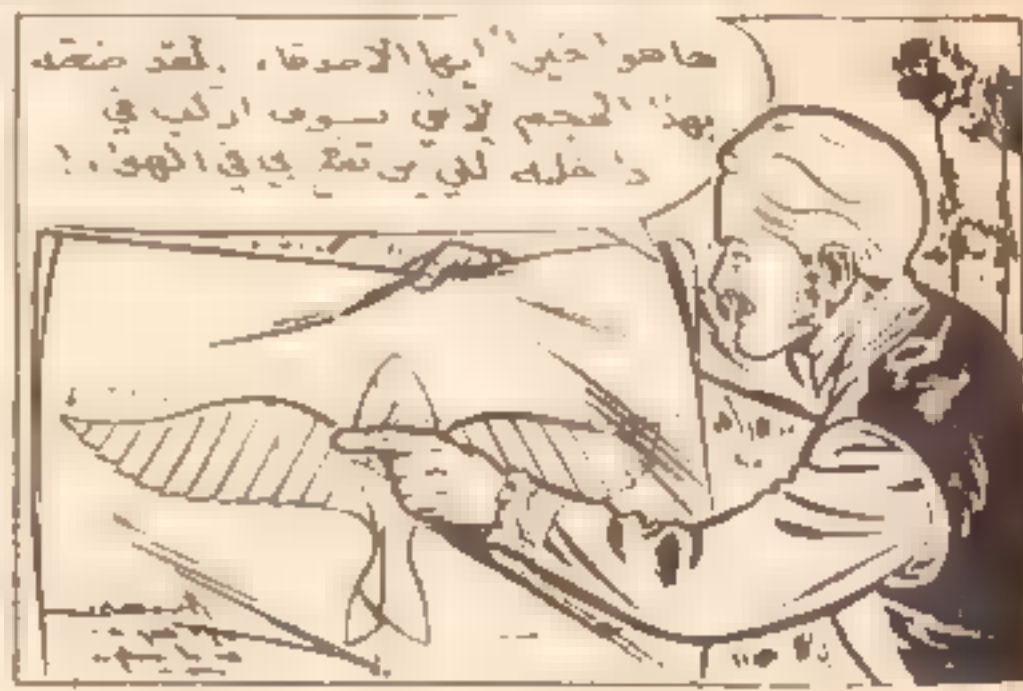 هاهو أيها الأصدقاء. لقد صنعته
بهذا الحجم لأني سوف اركب في
داخله لكي يرتفع بي في الهواء.!